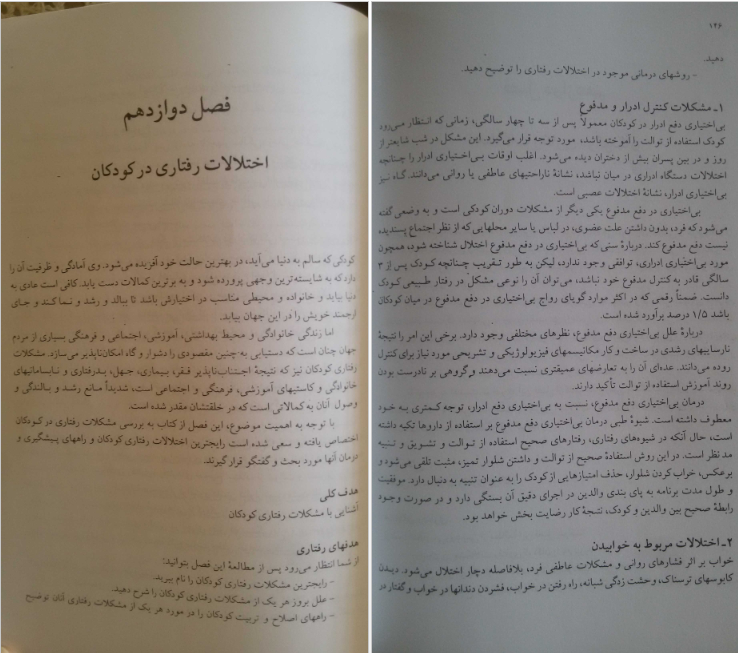 فصل دوازدهم
اختلالات رفتاری در کودکان
کودکی که سالم به دنیا می‌آید، در بهترین حالت خود آفریده می‌شود. وی آمادگی و ظرفیت آن را
دارد که به شایسته‌ترین وجهی پرورده شود و به برترین کمالات دست یابد. کافی است عادی به
دنیا بیاید و خانواده و محیطی مناسب در اختیارش باشد تا ببالد و رشد و نما کند و جای
ارجمند خویش را در این جهان بیابد.
اما زندگی خانوادگی و محیط بهداشتی، آموزشی، اجتماعی و فرهنگی بسیاری از مردم
جهان چنان است که دستیابی به چنین مقصودی را دشوار و گاه امکان‌ناپذیر می‌سازد. مشکلات
رفتاری کودکان نیز که نتیجهٔ اجتناب‌ناپذیر فقر، بیماری، جهل، بدرفتاری و نابسامانیهای
خانوادگی و کاستیهای آموزشی، فرهنگی و اجتماعی است، شدیداً مانع رشد و بالندگی و
وصول آنان به کمالاتی است که در خلقتشان مقدر شده است.
با توجه به اهمیت موضوع، این فصل از کتاب به بررسی مشکلات رفتاری در کودکان
اختصاص یافته و سعی شده است رایجترین اختلالات رفتاری کودکان و راههای پیشگیری و
درمان آنها مورد بحث و گفتگو قرار گیرند.
هدف کلی
آشنایی با مشکلات رفتاری کودکان
هدفهای رفتاری
از شما انتظار می‌رود پس از مطالعهٔ این فصل بتوانید:
- رایجترین مشکلات رفتاری کودکان را نام ببرید.
- علل بروز هر یک از مشکلات رفتاری کودکان را شرح دهید.
- راههای اصلاح و تربیت کودکان را در مورد هر یک از مشکلات رفتاری آنان توضیح
۱۴۶
دهید.
- روشهای درمانی موجود در اختلالات رفتاری را توضیح دهید.
۱ـ مشکلات کنترل ادرار و مدفوع
بی‌اختیاری دفع ادرار در کودکان معمولاً پس از سه تا چهار سالگی، زمانی که انتظار می‌رود
کودک استفاده از توالت را آموخته باشد، مورد توجه قرار می‌گیرد. این مشکل در شب شایعتر از
روز و در بین پسران بیش از دختران دیده می‌شود. اغلب اوقات بی‌اختیاری ادرار را چنانچه
اختلالات دستگاه ادراری در میان نباشد، نشانهٔ ناراحتیهای عاطفی یا روانی می‌دانند. گاه نیز
بی‌اختیاری ادرار، نشانهٔ اختلالات عصبی است.
بی‌اختیاری در دفع مدفوع یکی دیگر از مشکلات دوران کودکی است و به وضعی گفته
می‌شود که فرد، بدون داشتن علت عضوی، در لباس یا سایر محلهایی که از نظر اجتماع پسندیده
نیست دفع مدفوع کند. دربارهٔ سنی که بی‌اختیاری در دفع مدفوع اختلال شناخته شود، همچون
مورد بی‌اختیاری ادراری، توافقی وجود ندارد، لیکن به طور تقریب چنانچه کودک پس از ۳
سالگی قادر به کنترل مدفوع خود نباشد، می‌توان آن را نوعی مشکل در رفتار طبیعی کودک
دانست. ضمناً رقمی که در اکثر موارد گویای رواج بی‌اختیاری در دفع مدفوع در میان کودکان
باشد ۱/۵ درصد برآورد شده است.
دربارهٔ علل بی‌اختیاری دفع مدفوع، نظرهای مختلفی وجود دارد. برخی این امر را نتیجهٔ
نارساییهای رشدی در ساخت و کار مکانیسمهای فیزیولوژیکی و تشریحی مورد نیاز برای کنترل
روده می‌دانند. عده‌ای آن را به تعارضهای عمیقتری نسبت می‌دهند و گروهی بر نادرست بودن
روند آموزش استفاده از توالت تأکید دارند.
درمان بی‌اختیاری دفع مدفوع، نسبت به بی‌اختیاری دفع ادرار، توجه کمتری به خود
معطوف داشته است. شیوهٔ طبی درمان بی‌اختیاری دفع مدفوع بر استفاده از داروها تکیه داشته
است، حال آنکه در شیوه‌های رفتاری، رفتارهای صحیح استفاده از توالت و تشویق و تنبیه
مد نظر است. در این روش استفادهٔ صحیح از توالت و داشتن شلوار تمیز، مثبت تلقی می‌شود و
برعکس، خراب کردن شلوار، حذف امتیازهایی از کودک را به عنوان تنبیه به دنبال دارد. موفقیت
و طول مدت برنامه به پای بندی والدین در اجرای دقیق آن بستگی دارد و در صورت وجود
رابطهٔ صحیح بین والدین و کودک، نتیجهٔ کار رضایت بخش خواهد بود.
۲ـ اختلالات مربوط به خوابیدن
خواب بر اثر فشارهای روانی و مشکلات عاطفی فرد، بلافاصله دچار اختلال می‌شود. دیدن
کابوسهای ترسناک، وحشت زدگی شبانه، راه رفتن در خواب، فشردن دندانها در خواب و گفتار در